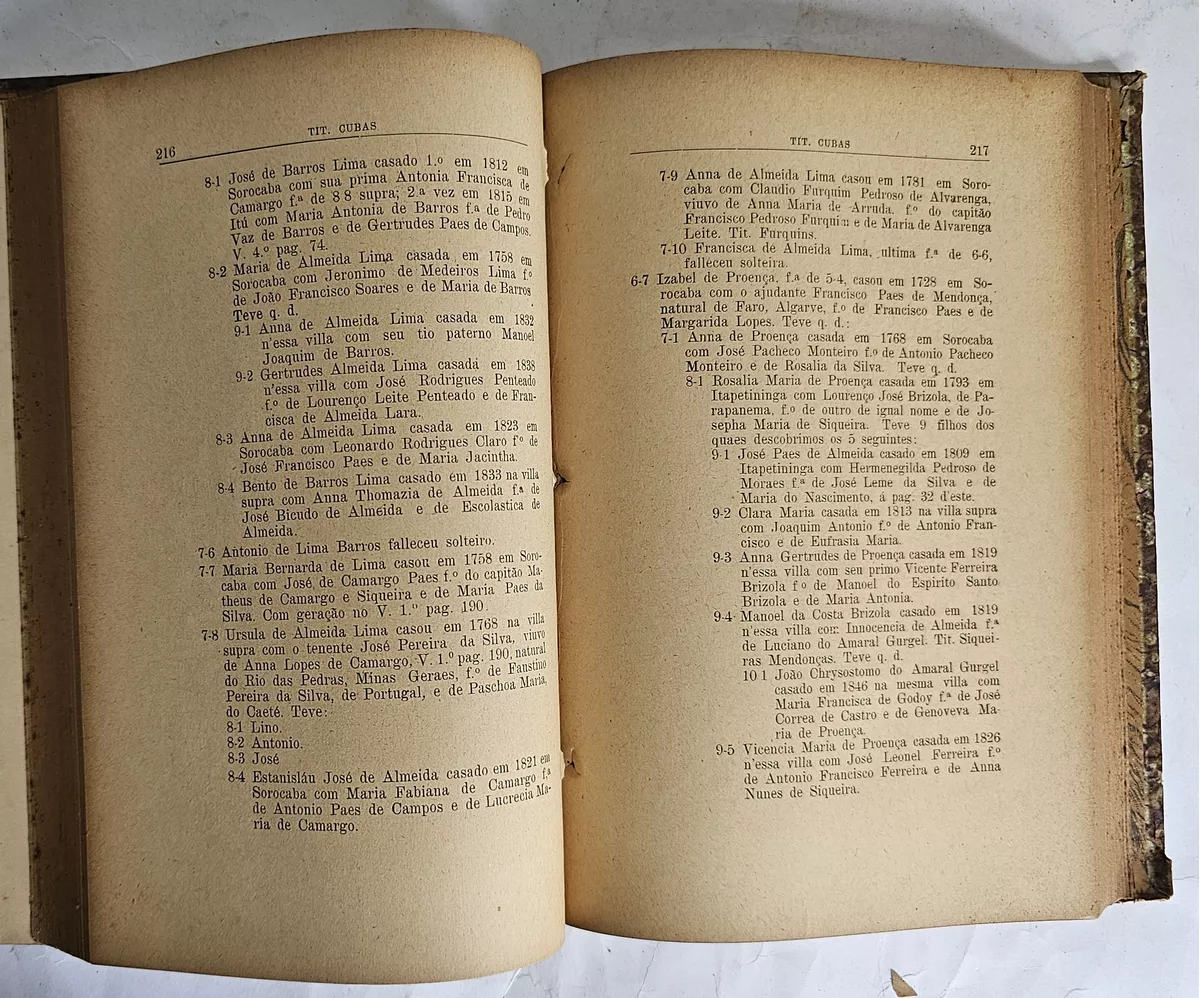 216
TIT. CUBAS
8-1 José de Barros Lima casado 1.º em 1812 em
Sorocaba com sua prima Antonia Francisca de
Camargo f.ª de 8 8 supra; 2.ª vez em 1815 em
Itú com Maria Antonia de Barros f.ª de Pedro
Vaz de Barros e de Gertrudes Paes de Campos.
V. 4.º pag. 74.
8-2 Maria de Almeida Lima casada em 1758 em
Sorocaba com Jeronimo de Medeiros Lima f.º
de João Francisco Soares e de Maria de Barros
Teve q. d.
9-1 Anna de Almeida Lima casada em 1832
n'essa villa com seu tio paterno Manoel
Joaquim de Barros.
9-2 Gertrudes Almeida Lima casada em 1838
n'essa villa com José Rodrigues Penteado
f.º de Lourenço Leite Penteado e de Fran-
cisca de Almeida Lara.
8-3 Anna de Almeida Lima casada em 1823 em
Sorocaba com Leonardo Rodrigues Claro f.º de
José Francisco Paes e de Maria Jacintha.
8-4 Bento de Barros Lima casado em 1833 na villa
supra com Anna Thomazia de Almeida f.ª de
José Bicudo de Almeida e de Escolastica de
Almeida.
7-6 Antonio de Lima Barros falleceu solteiro.
7-7 Maria Bernarda de Lima casou em 1758 em Soro-
caba com José de Camargo Paes f.º do capitão Ma-
theus de Camargo e Siqueira e de Maria Paes da
Silva. Com geração no V. 1.º pag. 190.
7-8 Ursula de Almeida Lima casou em 1768 na villa
supra com o tenente José Pereira da Silva, viuvo
de Anna Lopes de Camargo, V. 1.º pag. 190, natural
do Rio das Pedras, Minas Geraes, f.º de Faustino
Pereira da Silva, de Portugal, e de Paschoa Maria,
do Caeté. Teve:
8-1 Lino.
8-2 Antonio.
8-3 José
8-4 Estanisláu José de Almeida casado em 1821 em
Sorocaba com Maria Fabiana de Camargo f.ª
de Antonio Paes de Campos e de Lucrecia Ma-
ria de Camargo.
TIT. CUBAS
217
7-9 Anna de Almeida Lima casou em 1781 em Soro-
caba com Claudio Furquim Pedroso de Alvarenga,
viuvo de Anna Maria de Arruda, f.º do capitão
Francisco Pedroso Furquim e de Maria de Alvarenga
Leite. Tit. Furquins.
7-10 Francisca de Almeida Lima, ultima f.ª de 6-6,
falleceu solteira.
6-7 Izabel de Proença, f.ª de 5-4, casou em 1728 em So-
rocaba com o ajudante Francisco Paes de Mendonça,
natural de Faro, Algarve, f.º de Francisco Paes e de
Margarida Lopes. Teve q. d.:
7-1 Anna de Proença casada em 1768 em Sorocaba
com José Pacheco Monteiro f.º de Antonio Pacheco
Monteiro e de Rosalia da Silva. Teve q. d.
8-1 Rosalia Maria de Proença casada em 1793 em
Itapetininga com Lourenço José Brizola, de Pa-
rapanema, f.º de outro de igual nome e de Jo-
sepha Maria de Siqueira. Teve 9 filhos dos
quaes descobrimos os 5 seguintes:
9-1 José Paes de Almeida casado em 1809 em
Itapetininga com Hermenegilda Pedroso de
Moraes f.ª de José Leme da Silva e de
Maria do Nascimento, á pag. 32 d'este.
9-2 Clara Maria casada em 1813 na villa supra
com Joaquim Antonio f.º de Antonio Fran-
cisco e de Eufrasia Maria.
9-3 Anna Gertrudes de Proença casada em 1819
n'essa villa com seu primo Vicente Ferreira
Brizola f º de Manoel do Espirito Santo
Brizola e de Maria Antonia.
9-4 Manoel da Costa Brizola casado em 1819
n'essa villa com Innocencia de Almeida f.ª
de Luciano do Amaral Gurgel. Tit. Siquei-
ras Mendonças. Teve q. d.
10 1 João Chrysostomo do Amaral Gurgel
casado em 1846 na mesma villa com
Maria Francisca de Godoy f.ª de José
Correa de Castro e de Genoveva Ma-
ria de Proença.
9-5 Vicencia Maria de Proença casada em 1826
n'essa villa com José Leonel Ferreira f.º
de Antonio Francisco Ferreira e de Anna
Nunes de Siqueira.